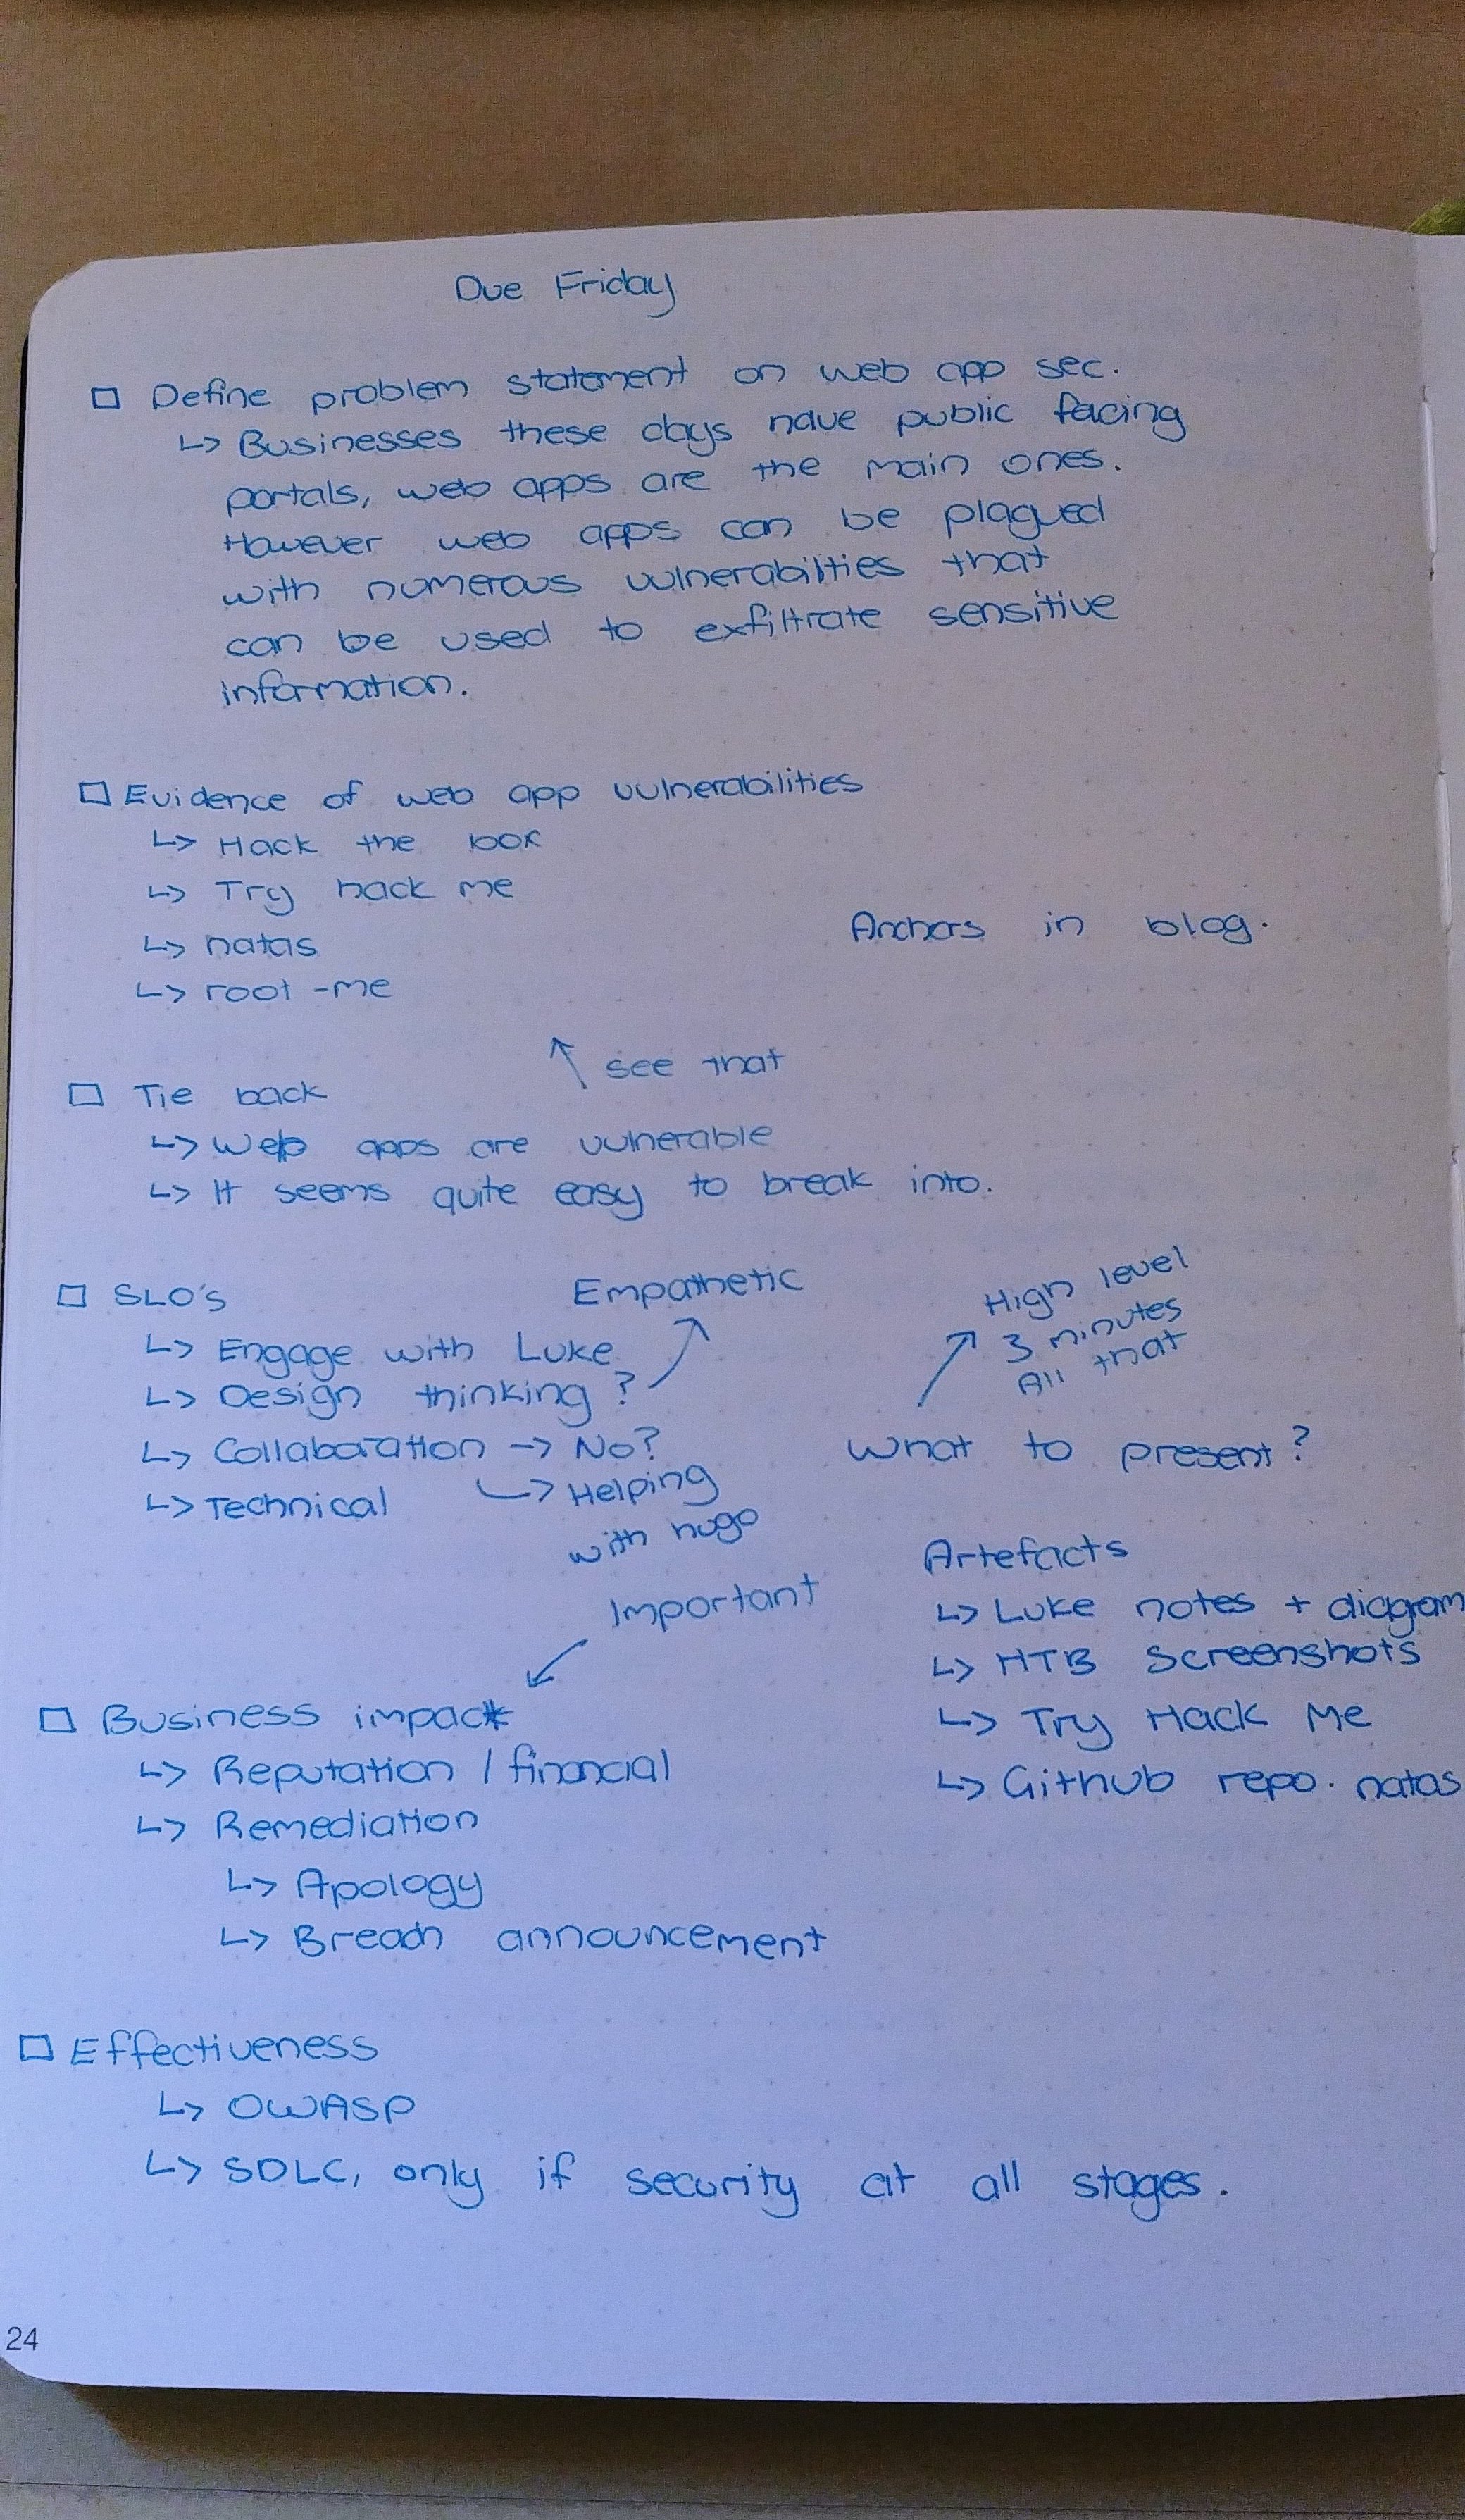 Due Friday
□ Define problem statement on web app sec.
↳ Businesses these days have public facing
portals, web apps are the main ones.
However web apps can be plagued
with numerous vulnerabilities that
can be used to exfiltrate sensitive
information.
□ Evidence of web app vulnerabilities
↳ Hack the box
↳ Try hack me
↳ natas
↳ root-me
Anchors in blog.
↖ see that
□ Tie back
↳ Web apps are vulnerable
↳ It seems quite easy to break into.
□ SLO's
↳ Engage with Luke
↳ Design thinking? ↗ Empathetic
↳ Collaboration → No?
↳ Helping
with hugo
↳ Technical
What to present?
↗ High level
3 minutes
All that
Artefacts
↳ Luke notes + diagram
↳ HTB Screenshots
↳ Try Hack Me
↳ Github repo. natas
Important
↙
□ Business impact
↳ Reputation / financial
↳ Remediation
↳ Apology
↳ Breach announcement
□ Effectiveness
↳ OWASP
↳ SDLC, only if security at all stages.
24